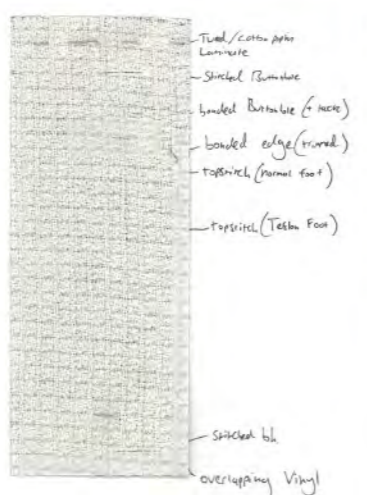 Tweed/cotton poplin
Laminate
Stitched Buttonhole
bonded Buttonhole (+ )
bonded edge (turned)
topstitch (normal foot)
topstitch (Teflon Foot)
Stitched bh
overlapping Vinyl